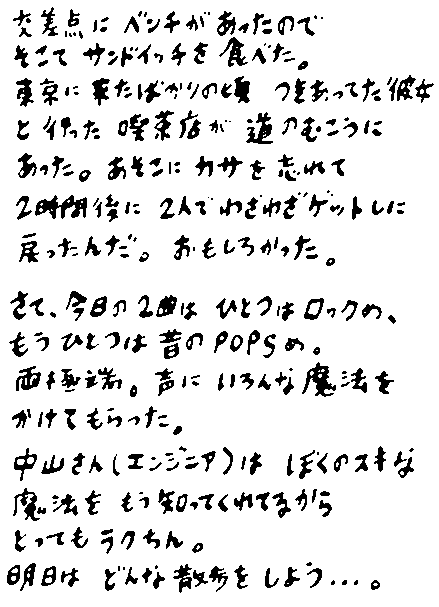 交差点に ベンチがあったので
そこで サンドイッチを 食べた。
東京に 来たばかりの頃 つきあってた彼女
と 行った 喫茶店が 道のむこうに
あった。あそこに カサを 忘れて
2時間後に 2人で わざわざゲットしに
戻ったんだ。おもしろかった。
さて、今日の2曲は ひとつはロックめ、
もうひとつは 昔のPOPSめ。
両極端。声に いろんな魔法を
かけてもらった。
中山さん(エンジニア)は ぼくのスキな
魔法を もう知ってくれてるから
とってもラクちん。
明日は どんな散歩を しよう…。